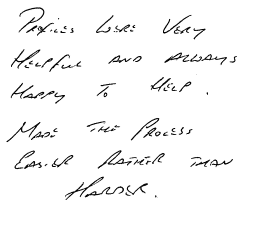 Profiles were very
helpful and always
happy to help.
Made the process
easier rather than
harder.